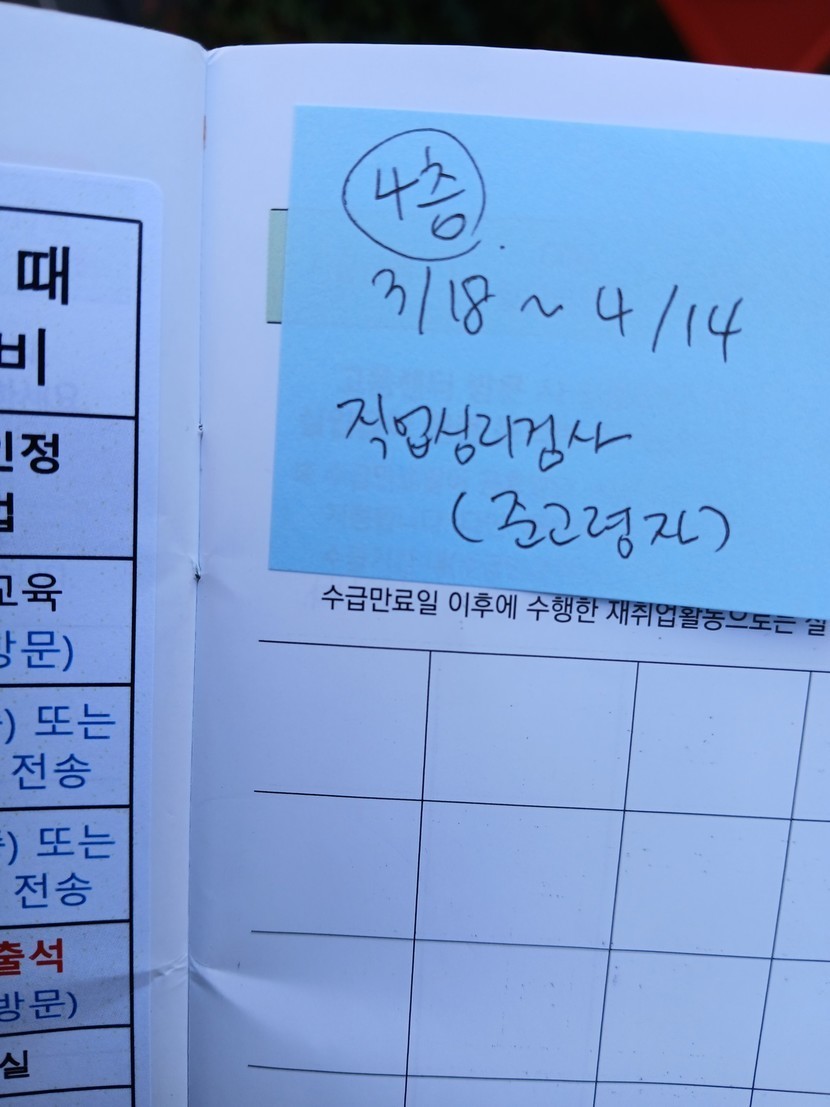 때
비
인정
업
교육
방문)
) 또는
전송
) 또는
전송
출석
방문)
실
4층
3/18 ~ 4/14
직업심리검사
(준고령자)
수급만료일 이후에 수행한 재취업활동으로는 실